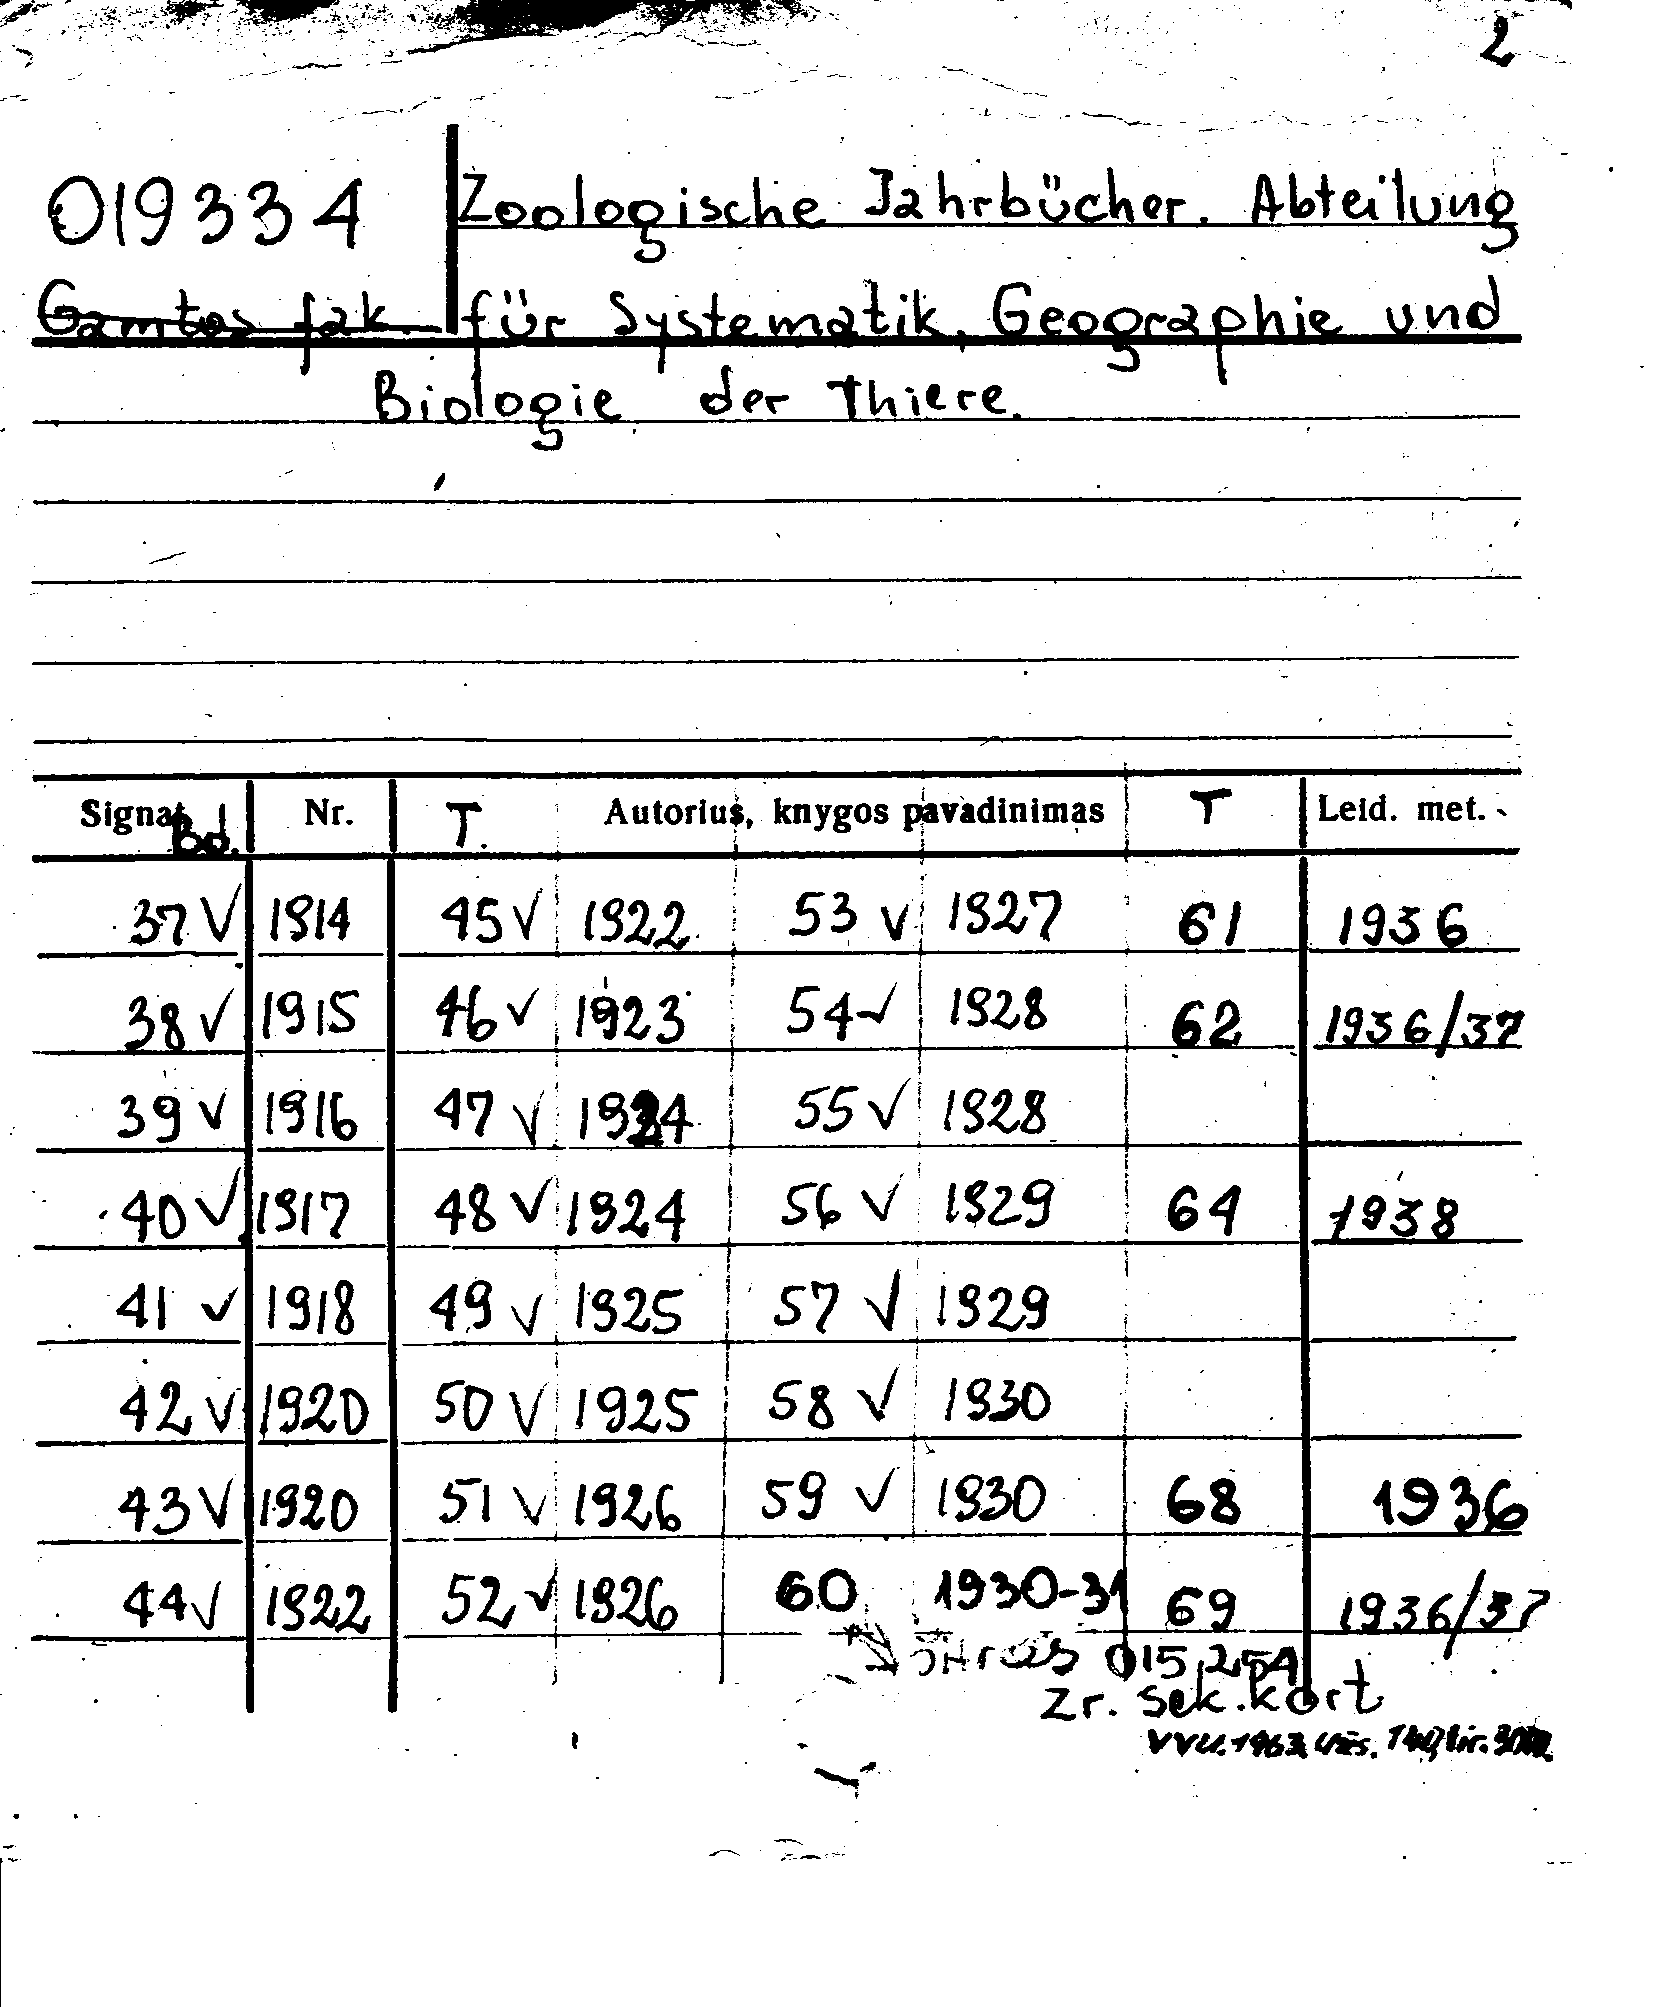 2
019334 Zoologische Jahrbücher. Abteilung
Gamtos fak. für Systematik, Geographie und
Biologie der Thiere.
Signat. Bd. Nr. T. Autorius, knygos pavadinimas T Leid. met.
37 √ 1914 45 √ 1922 53 √ 1927 61 1936
38 √ 1915 46 √ 1923 54 √ 1928 62 1936/37
39 √ 1916 47 √ 1924 55 √ 1928
40 √ 1917 48 √ 1924 56 √ 1929 64 1938
41 √ 1918 49 √ 1925 57 √ 1929
42 √ 1920 50 √ 1925 58 √ 1930
43 √ 1920 51 √ 1926 59 √ 1930 68 1936
44 √ 1922 52 √ 1926 60 1930-31 69 1936/37
015254
Zr. sek. kort
VVU. 1963